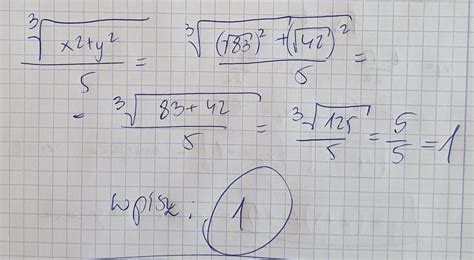 ∛(x2+y²)/5 = ∛((√83)²+(√42)²)/5 =
= ∛(83+42)/5 = ∛125/5 = 5/5 = 1
wpisz: 1